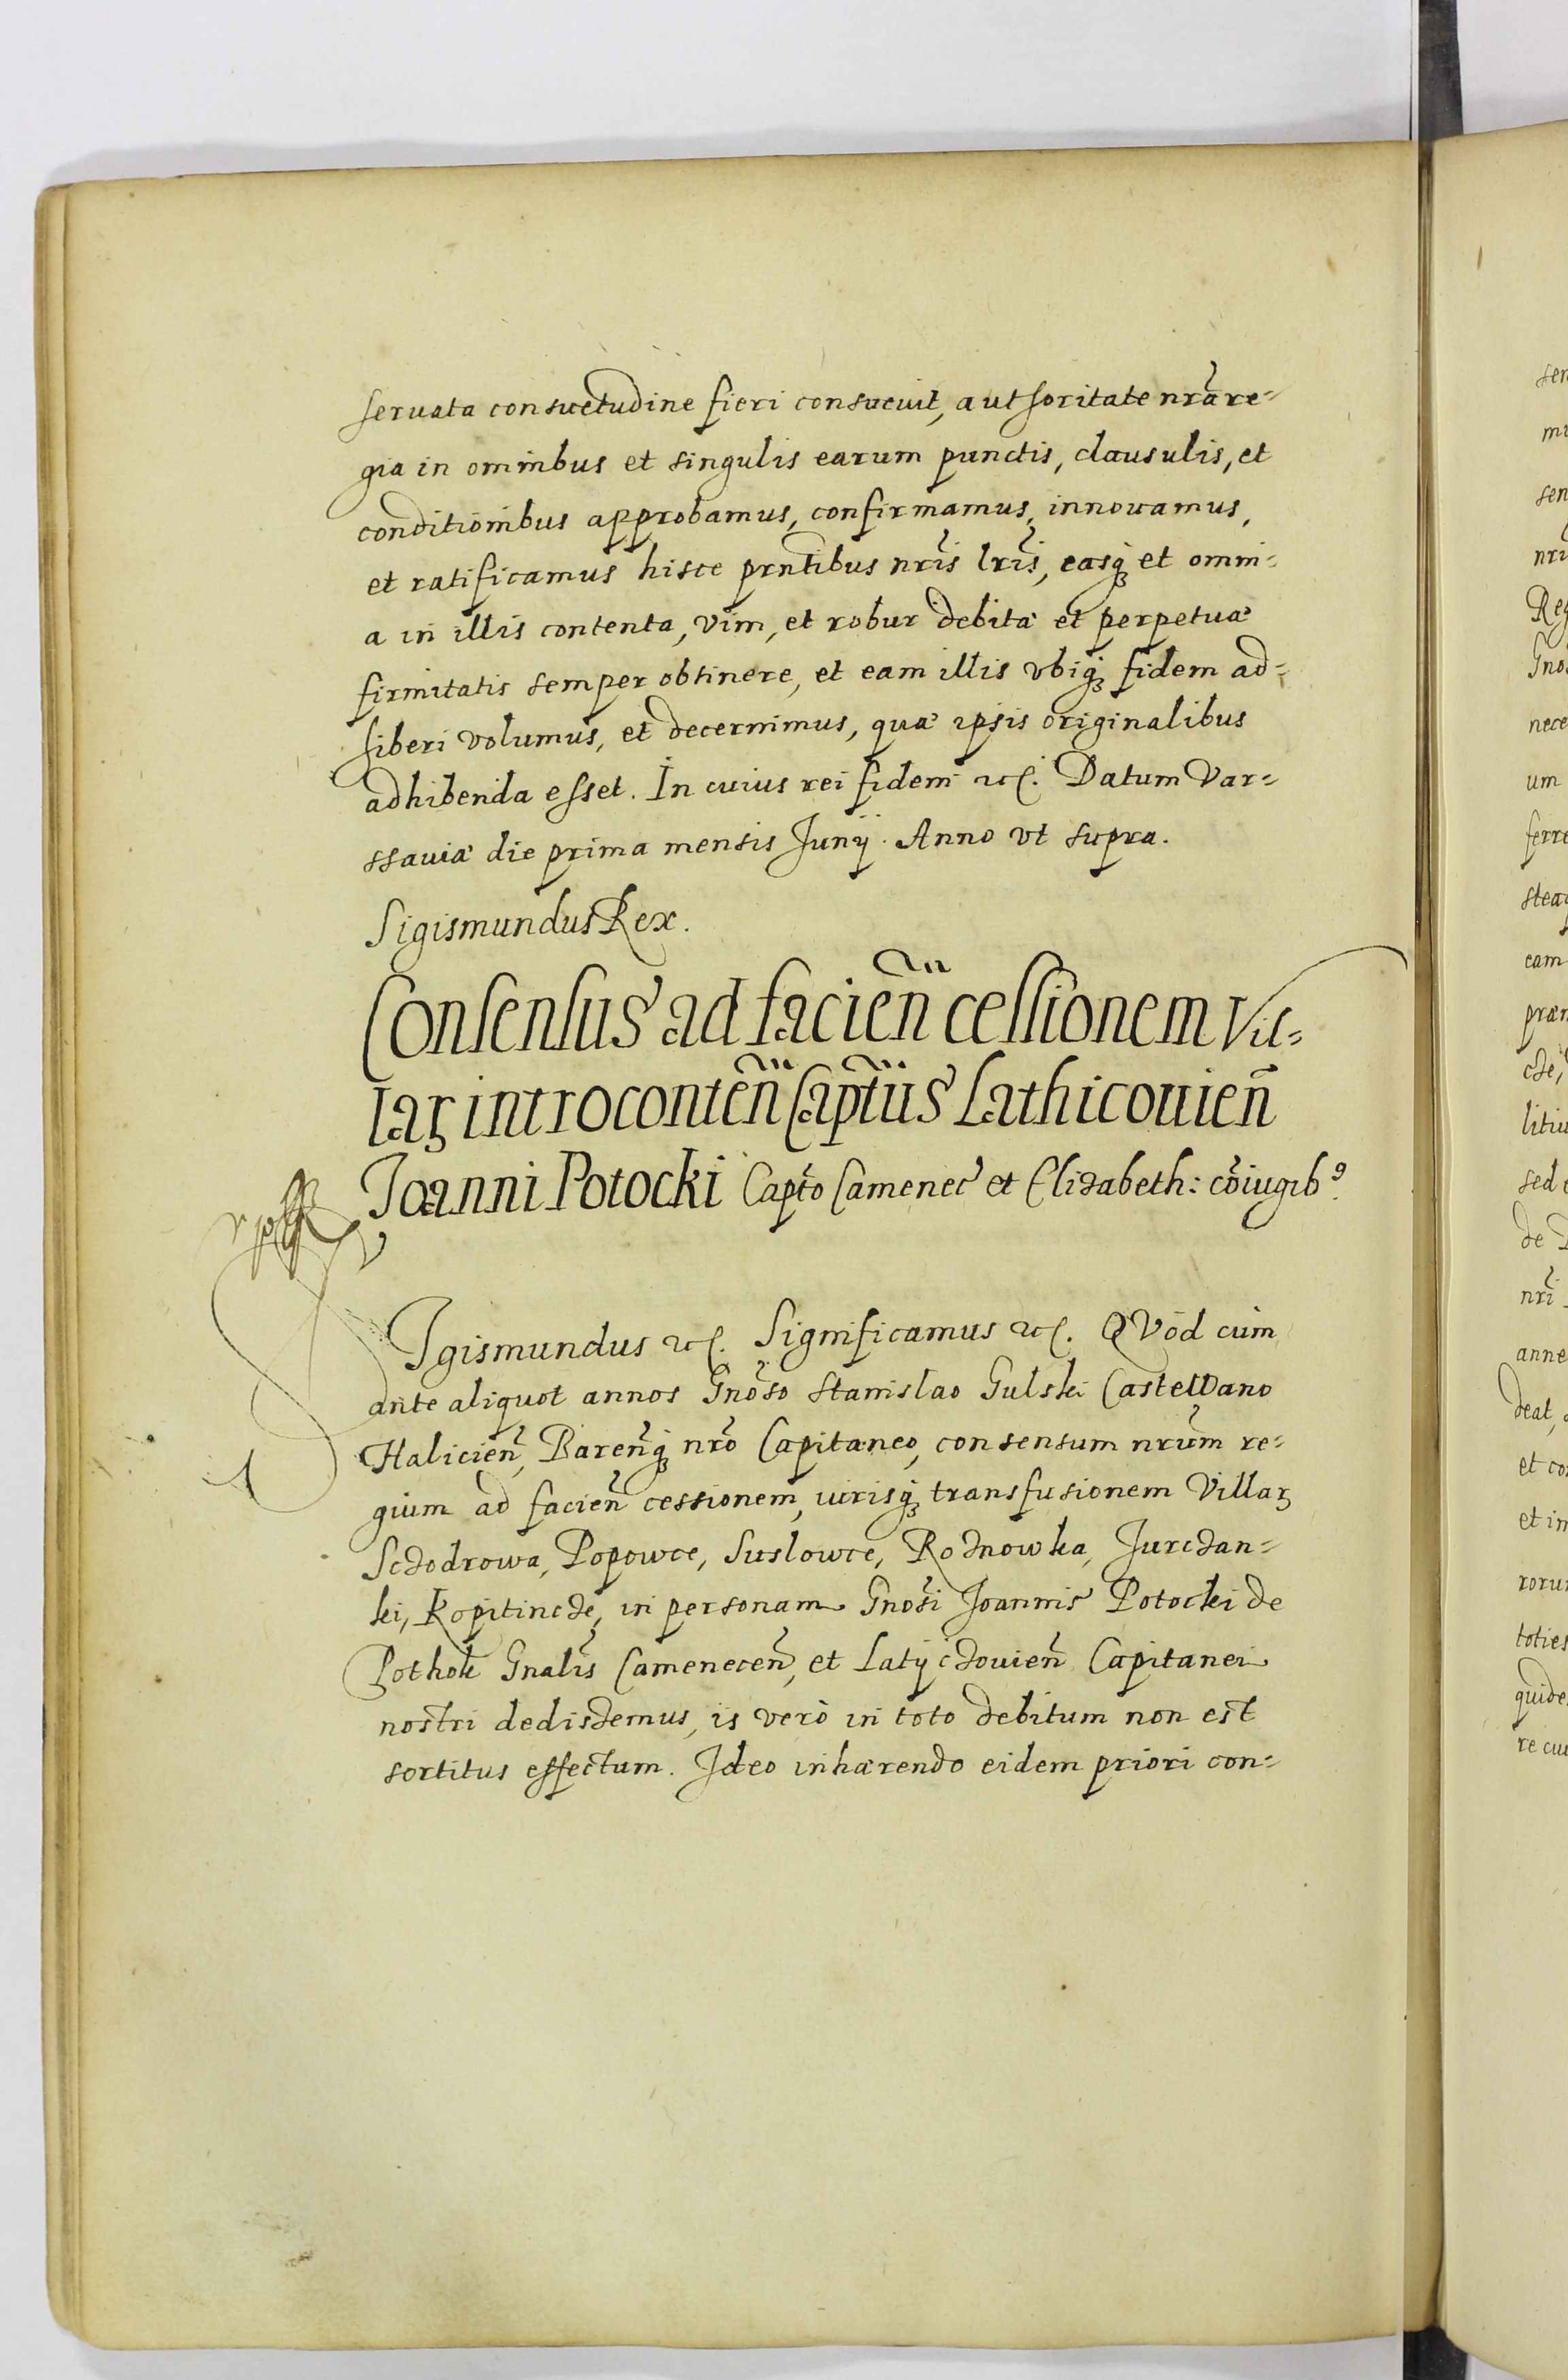 seruata consuetudine fieri consueuit, authoritate nrã re-
gia in omnibus et singulis earum punctis, clausulis, et
conditionibus approbamus, confirmamus, innouamus,
et ratificamus hisce prntibus nris lris, easq3 et omni-
a in illis contenta, vim, et robur debitæ et perpetuæ
firmitatis semper obtinere, et eam illis vbiq3 fidem ad-
hiberi volumus, et decernimus, quæ ipsis originalibus
adhibenda esset. In cuius rei fidem etc. Datum Var-
ssauiæ die prima mensis Junij. Anno vt supra.
Sigismundus Rex.
Consensus ad facien̄ cessionem Vil-
laꝝ introconten̄ Capt̃us Lathicouien̄
Joanni Potocki Capt̃o Camenec̃ et Elizabeth: cõiugibꝰ.
Sigismundus etc. Significamus etc. QVod cum
ante aliquot annos Gnõso Stanislao Gulski Castellano
Halicien̄, Baren̄q3 nrõ Capitaneo, consensum nrũm re-
gium ad facien̄ cessionem, iurisq3 transfusionem Villaꝝ
Sczodrowa, Popowce, Suslowce, Roznowka, Jurczan-
ki, Kopitincze, in personam Gnõsi Joannis Potocki de
Pothok Gnalis Camenecen̄, et Latyczouien̄ Capitanei
nostri dediszemus, is verò in toto debitum non est
sortitus effectum. Ideo inhærendo eidem priori con-